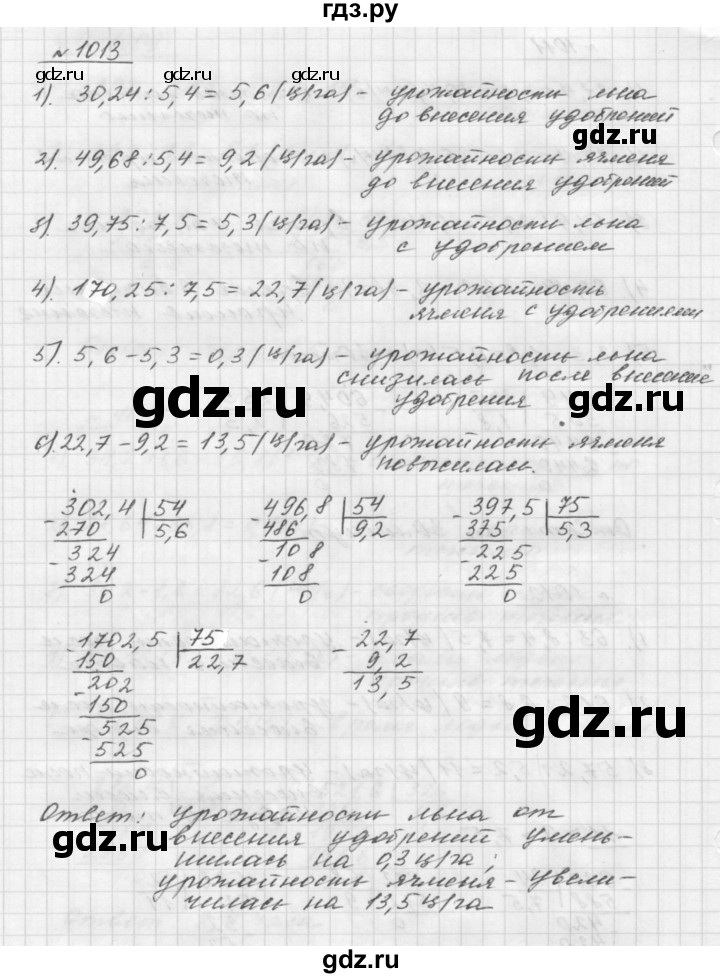 гдз.ру
№ 1013
1). 30,24 : 5,4 = 5,6 (ц/га) - урожайность льна
до внесения удобрений
2). 49,68 : 5,4 = 9,2 (ц/га) - урожайность ячменя
до внесения удобрений
3). 39,75 : 7,5 = 5,3 (ц/га) - урожайность льна
с удобрением
4). 170,25 : 7,5 = 22,7 (ц/га) - урожайность
ячменя с удобрениями
5). 5,6 - 5,3 = 0,3 (ц/га) - урожайность льна
снизилась после внесение
удобрения
6). 22,7 - 9,2 = 13,5 (ц/га) - урожайность ячменя
повысилась.
302,4 54 496,8 54 397,5 75
- 270 5,6 - 486 9,2 - 375 5,3
324 108 225
- 324 - 108 - 225
0 0 0
1702,5 75 22,7
- 150 22,7 - 9,2
202 13,5
- 150
525
- 525
0
Ответ: урожайность льна от
внесения удобрений умень-
шилась на 0,3 ц/га;
урожайность ячменя - увели-
чилась на 13,5 ц/га
gdz.ru
gdz.ru
gdz.ru
gdz.ru
gdz.ru
gdz.ru
gdz.ru
gdz.ru
gdz.ru
gdz.ru
gdz.ru
gdz.ru
gdz.ru